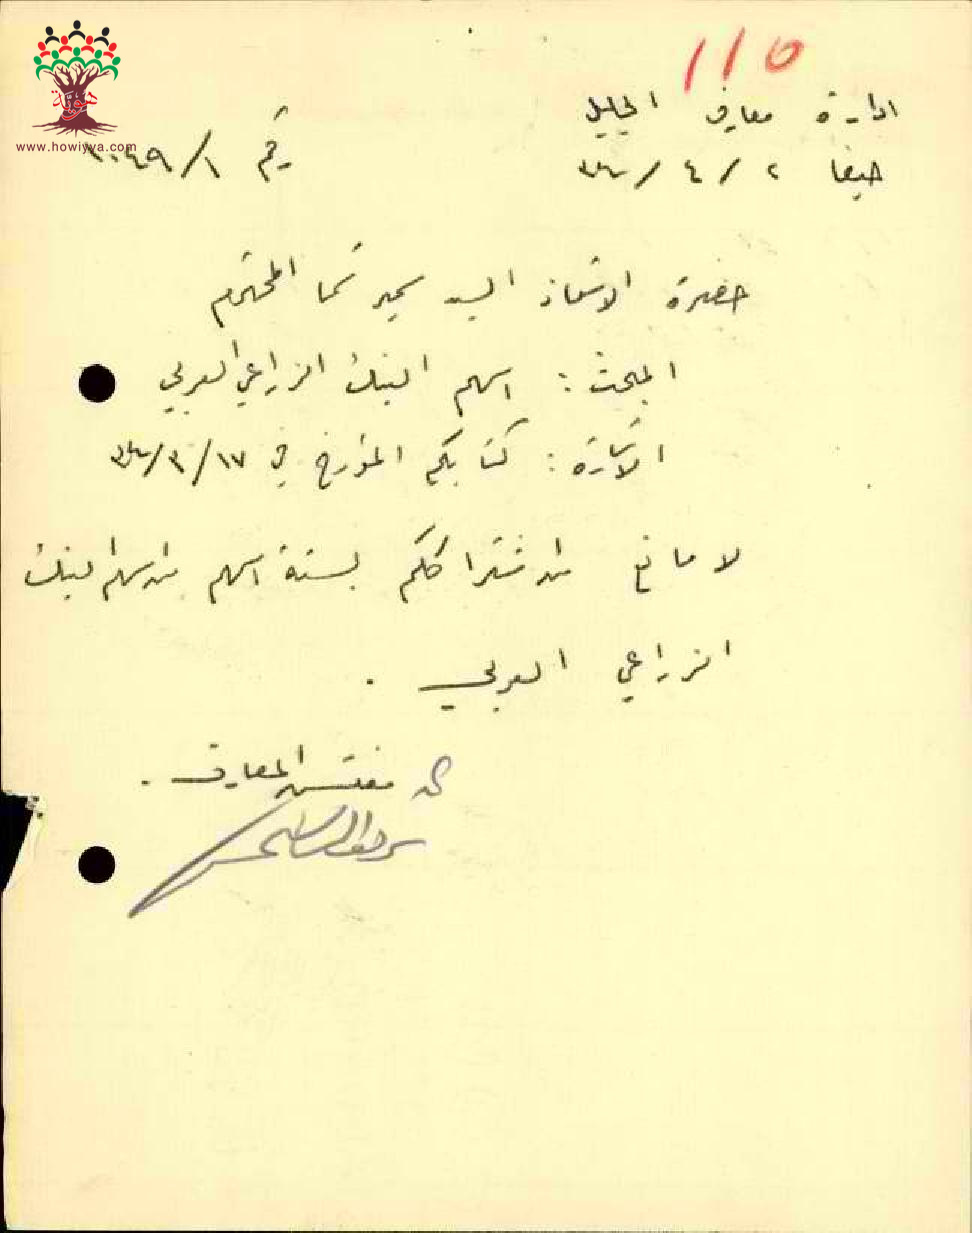 110
ادارة معارف الجليل
حيفا ٢ / ٤ / ٣٤
رقم ١/ ٢٠٤٩
هوية
www.howiyya.com
حضرة الاستاذ السيد سمير شما المحترم
المبحث : اسهم البنك الزراعي العربي
الاشارة : كتابكم المؤرخ في ١٧/ ٣/
لا مانع من اشتراككم بستة اسهم من اسهم البنك
الزراعي العربي .
مفتش المعارف .